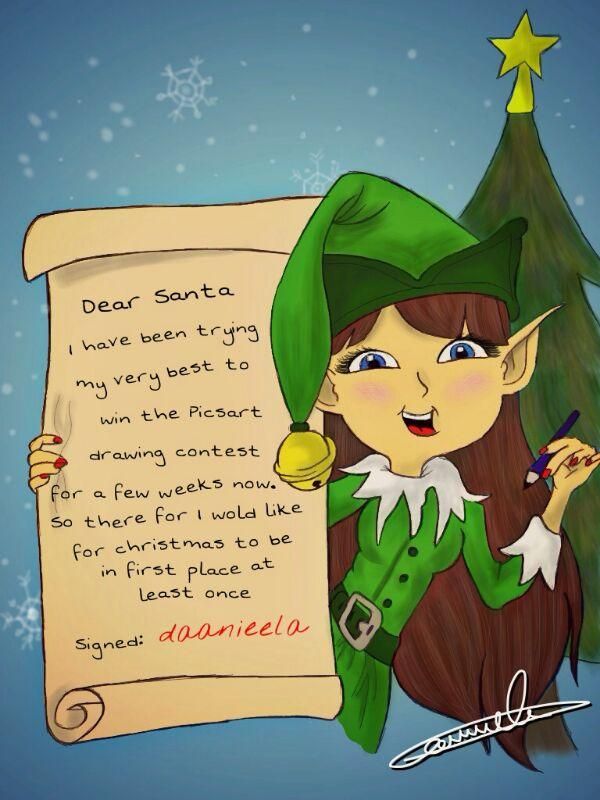 Dear Santa
I have been trying
my very best to
win the Picsart
drawing contest
for a few weeks now.
So there for I wold like
for christmas to be
in first place at
least once
Signed: daanieela